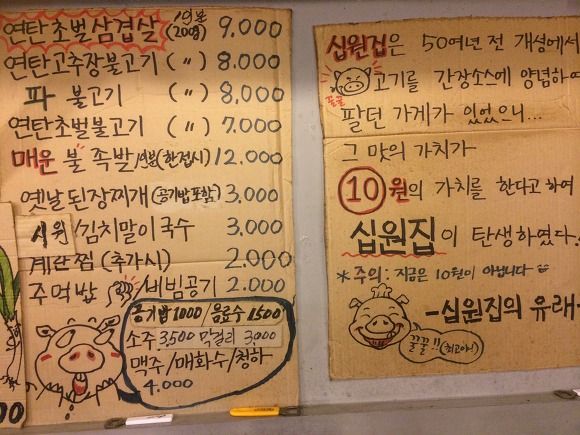 연탄초벌삼겹살 1인분(200g) 9,000
연탄고추장불고기 (〃) 8,000
파 불고기 (〃) 8,000
연탄초벌불고기 (〃) 7,000
매운 불 족발 1인분(한접시) 12,000
옛날된장찌개(공기밥포함) 3,000
시원/김치말이 국수 3,000
계란찜 (추가시) 2.000
주먹밥 /비빔공기 2.000
공기밥1000/음료수1500
소주3500 막걸리 3,000
맥주/매화수/청하
4.000
00
십원집은 50여년 전 개성에서
고기를 간장소스에 양념하여
팔던 가게가 있었으니...
그 맛의 가치가
10원의 가치를 한다고 하여
십원집이 탄생하였다.
*주의: 지금은 10원이 아닙니다
-십원집의 유래-
꿀꿀!!(최고야)